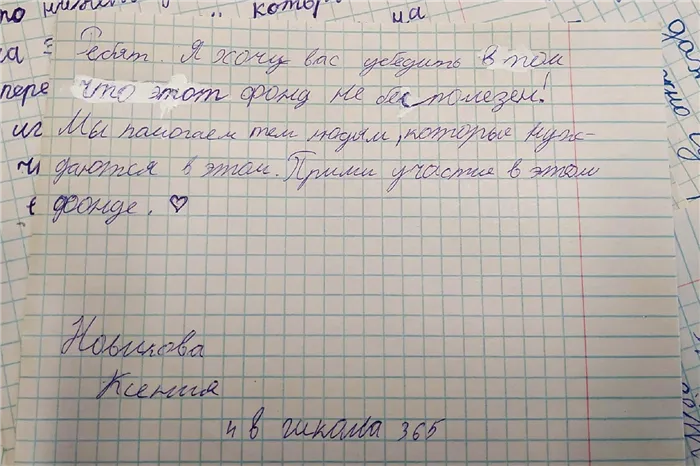 котор
на
Ребят. Я хочу вас убедить в том
пере что этот фонд не бес полезен!
Мы помогаем тем людям, которые нуж-
даются в этом. Прими участие в этом
фонде. ♡
Новикова
Ксения
4 в школа 365